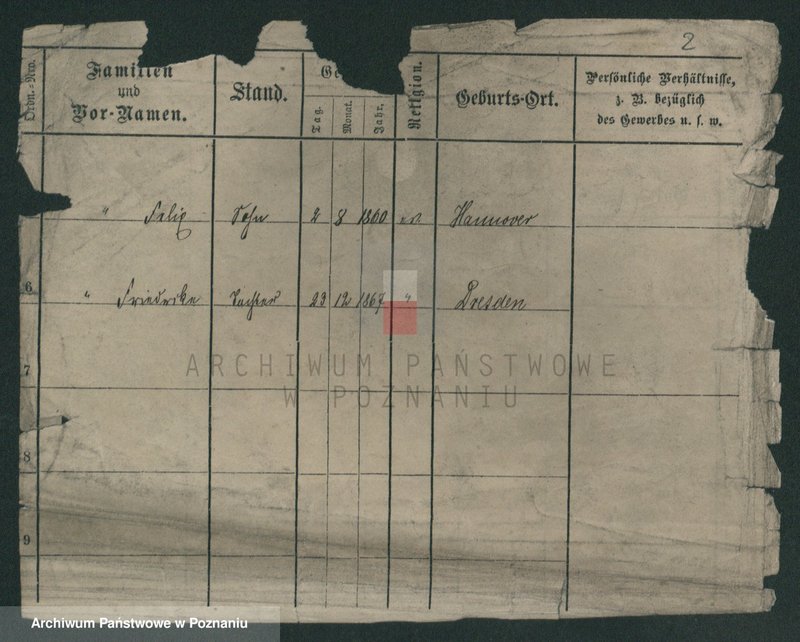 2
Ordn.-Nro.
Familien
und
Vor-Namen.
Stand.
Ge
Tag.
Monat.
Jahr.
Religion.
Geburts-Ort.
Persönliche Verhältnisse,
z. B. bezüglich
des Gewerbes u. s. w.
" Felix Sohn 2 8 1860 ev. Hannover
6 " Friedrike Tochter 23 12 1867 " Dresden
7
8
9
ARCHIWUM PAŃSTWOWE
W POZNANIU
Archiwum Państwowe w Poznaniu